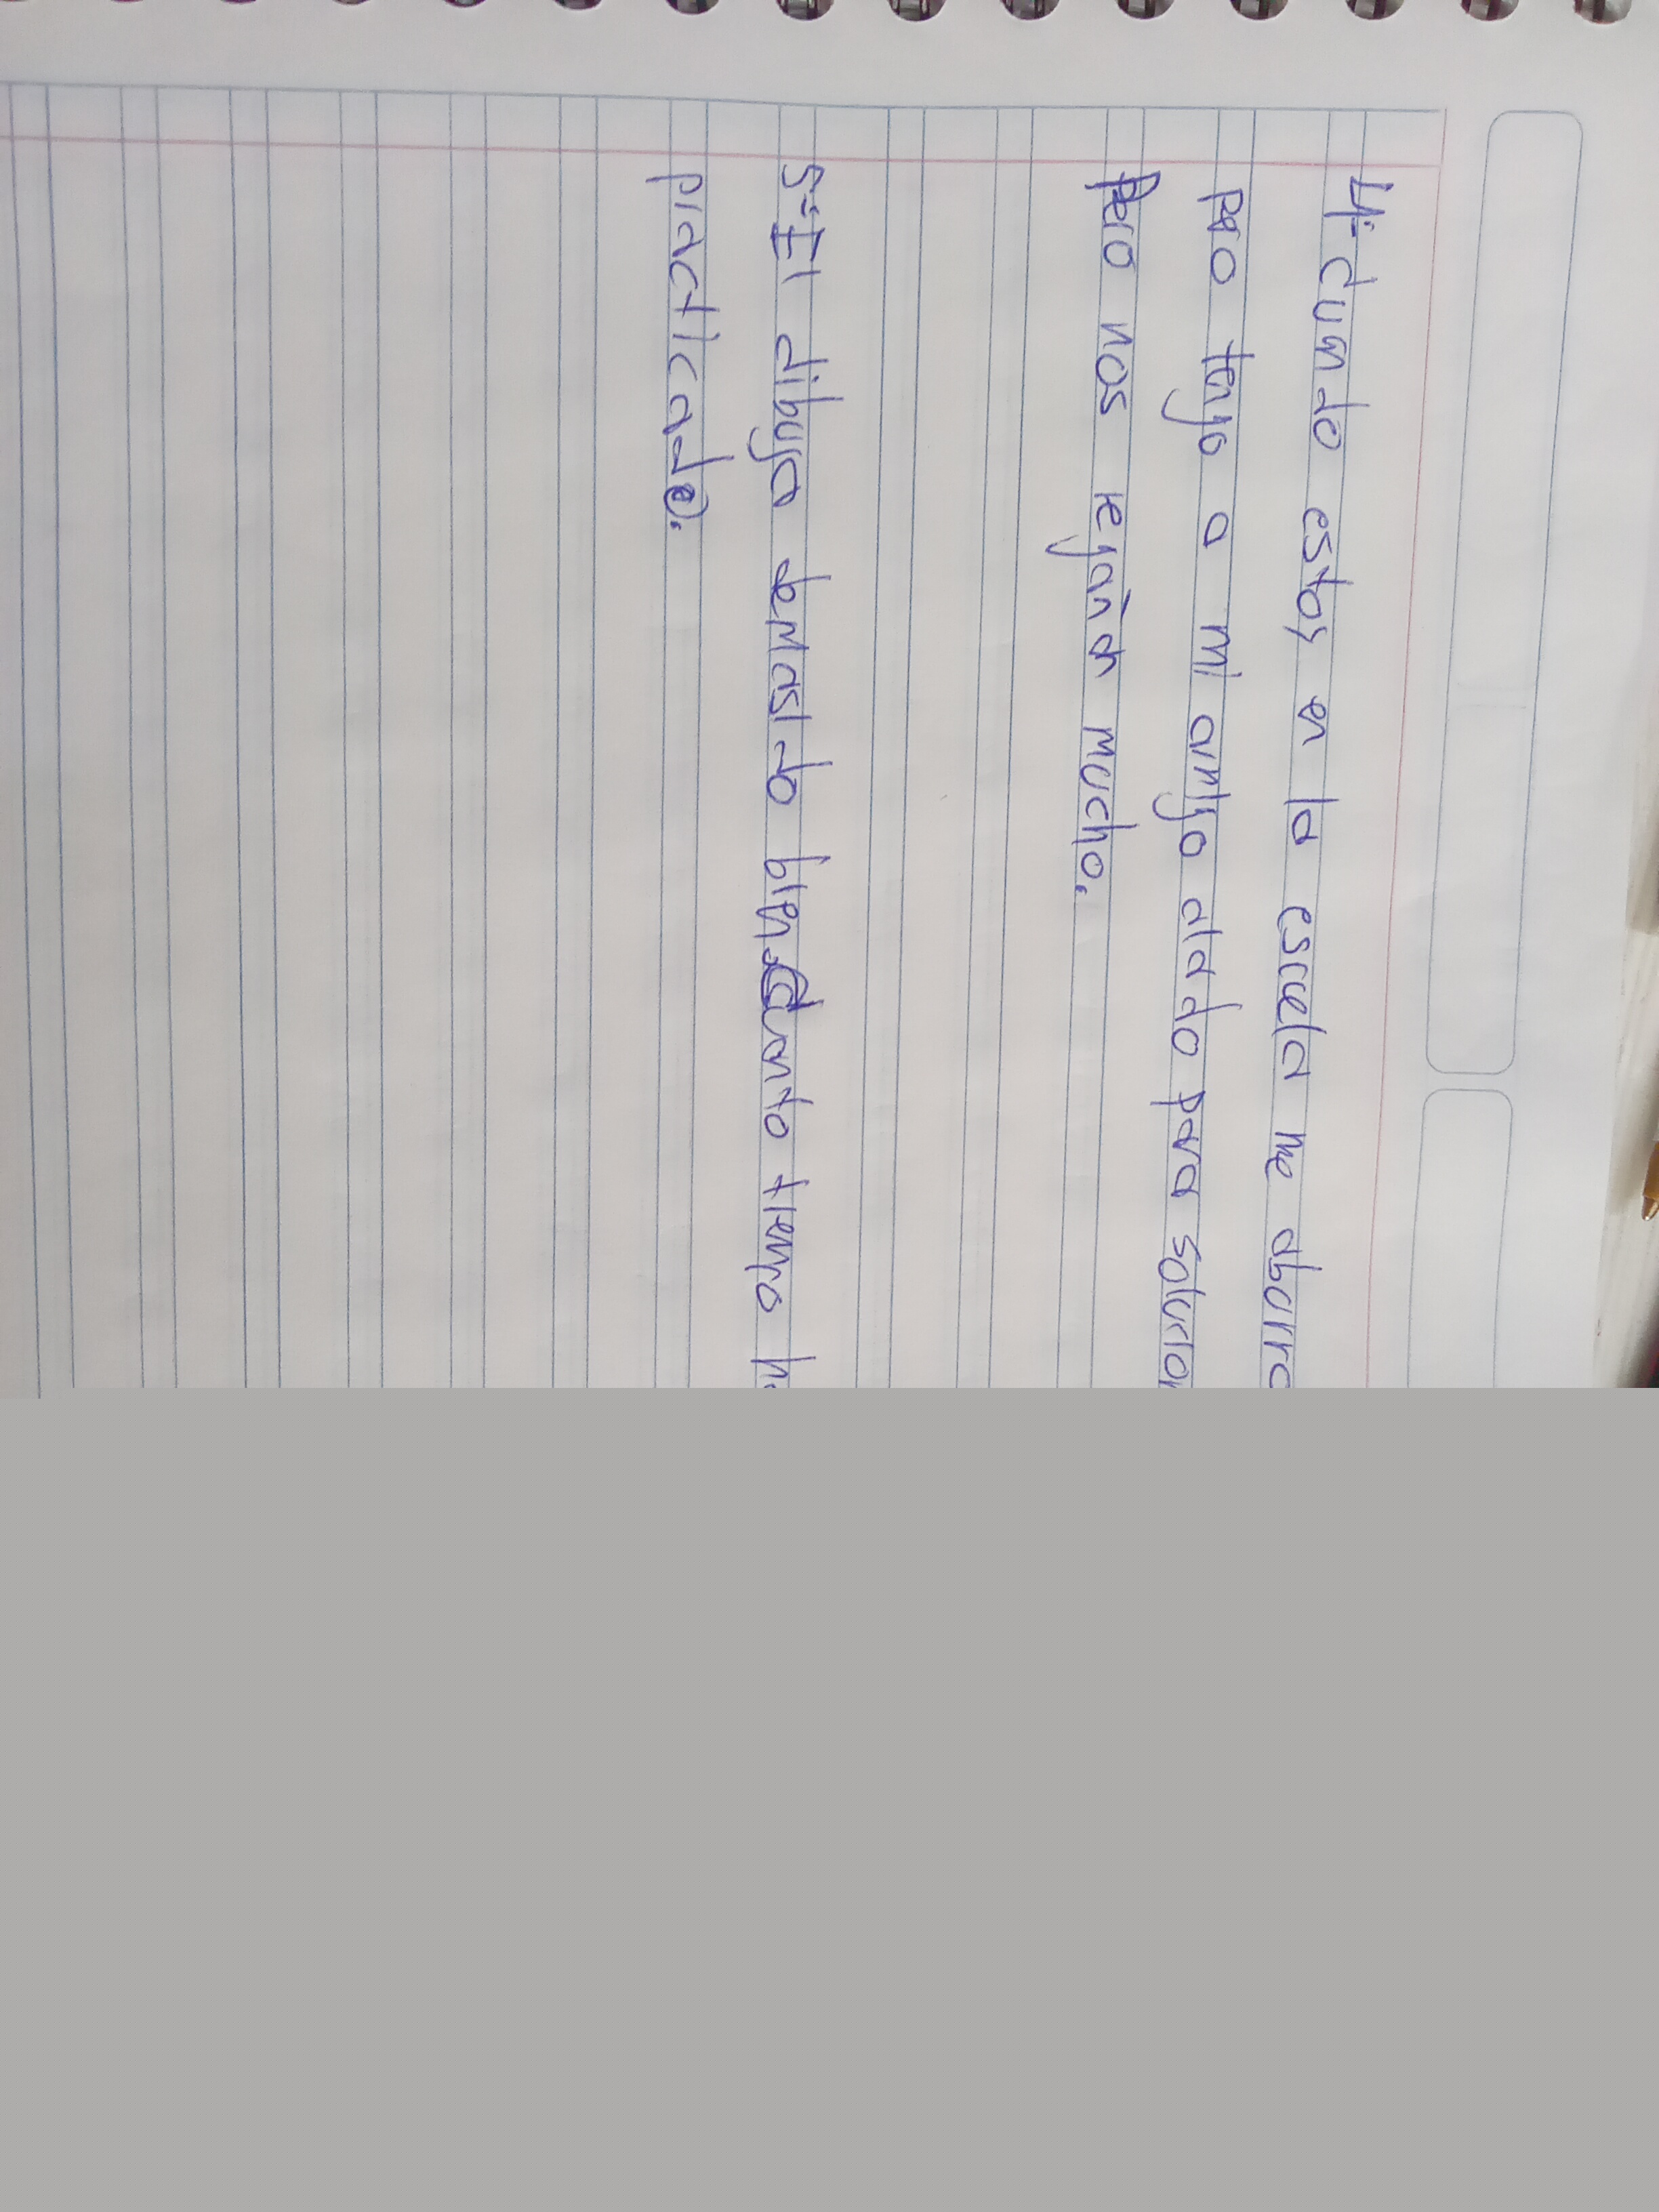 4.- Cuando estoy en la escuela me aburro
pero tengo a mi amigo alado para
Pero nos regañan mucho.
5.- El dibuja demasiado bien. Cuanto tiempo
practicado.